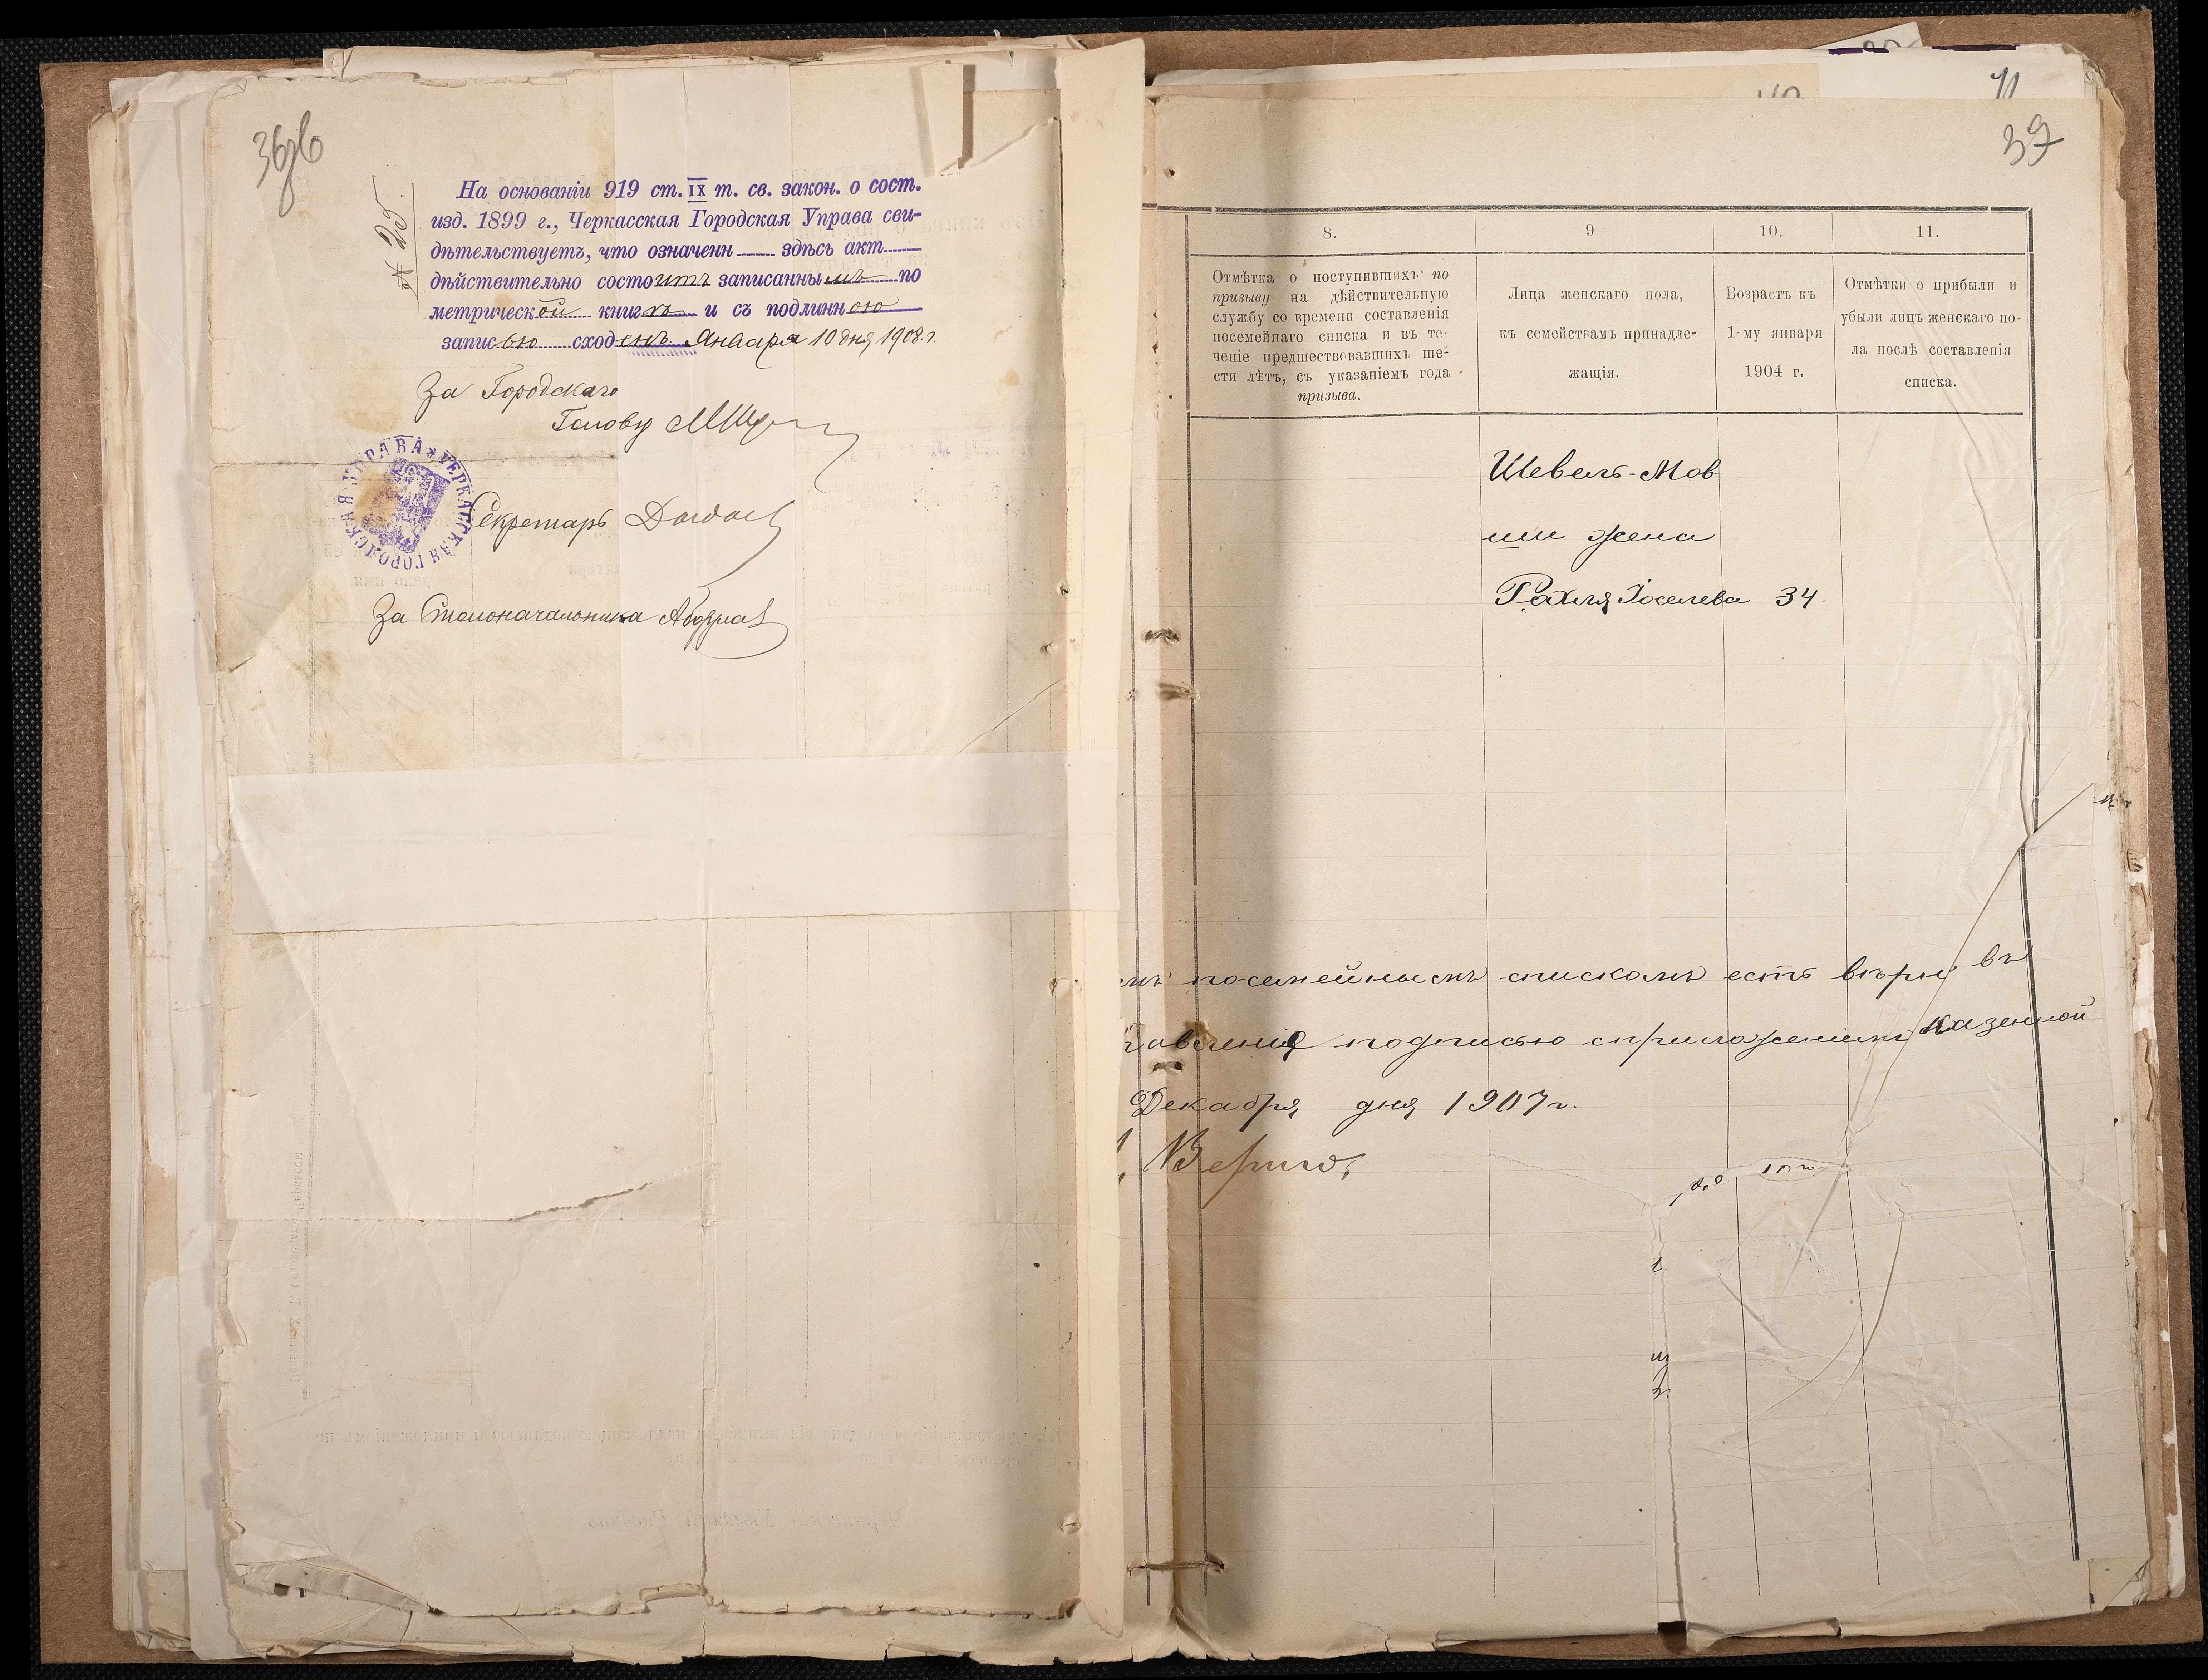 36об
№ 25.
На основаніи 919 ст. IX т. св. закон. о сост.
изд. 1899 г., Черкасская Городская Управа сви-
дѣтельствуетъ, что означенн здѣсь акт
дѣйствительно состоитъ записаннымъ по
метрической книгѣ и съ подлинною
записью сходенъ Января 10 дня 1908 г.
За Городскаго
Голову
ЧЕРКАССКАЯ ГОРОДСКАЯ УПРАВА
Секретарь
За Столоначальника
11
37
8. 9 10. 11.
Отмѣтка о поступившихъ по
призыву на дѣйствительную
службу со времени составленія
посемейнаго списка и въ те-
ченіе предшествовавшихъ ше-
сти лѣтъ, съ указаніемъ года
призыва.
Лица женскаго пола,
къ семействамъ принадле-
жащія.
Возрастъ къ
1-му января
1904 г.
Отмѣтки о прибыли и
убыли лицъ женскаго по-
ла послѣ составленія
списка.
Шевель-Мов
ши жена
Рахля Іоселева 34
посемейнымъ спискомъ есть вѣрны въ
подписью съ приложеніемъ казенной
Декабря дня 1907 г.